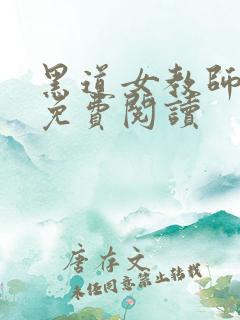 黑道女教师
免費閱讀
唐存文
未经同意禁止转载